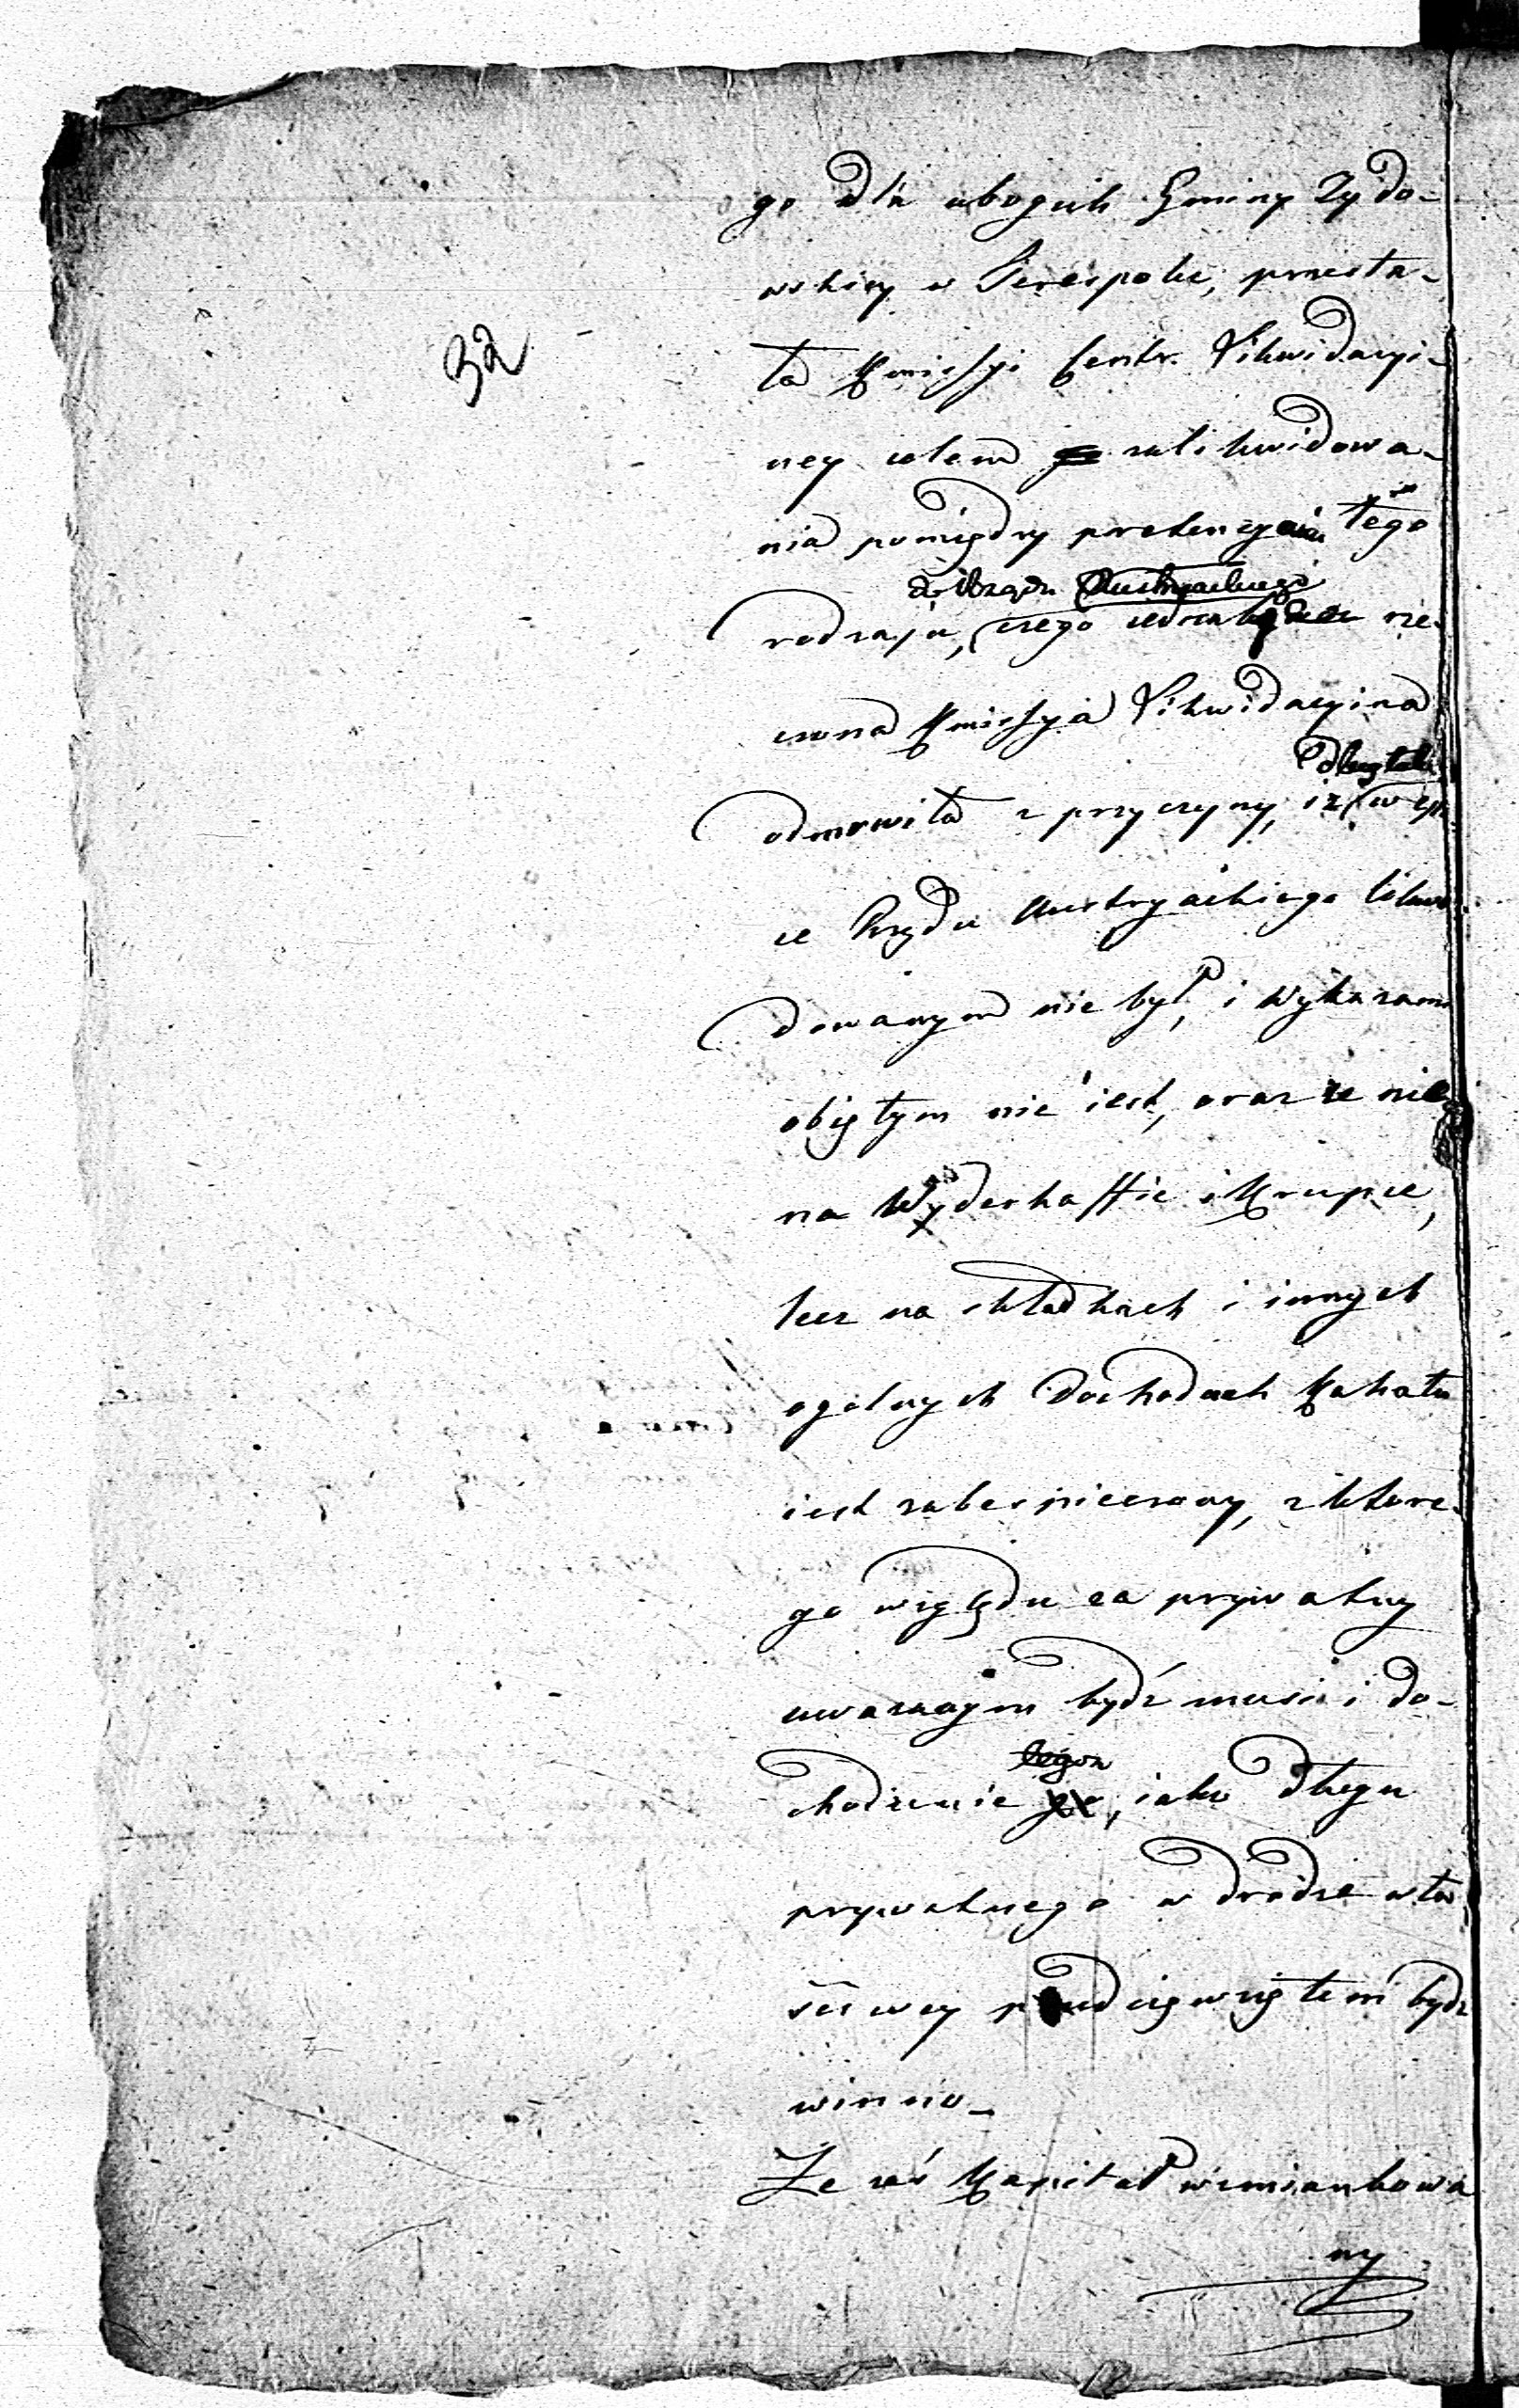 go dla ubogich Gminy Zydo-
wskiey w Terespolu, przesła-
32
ła Kmissyi Centr. Likwidacyi-
ney celem zalikwidowa-
nia pomiędzy pretensyami tego
do Rządu Austryackiego
rodzaju, czego jednakże rze-
czona Kmissya Likwidacyina
dług taki
odmowiła z przyczyny, iż w
ze Rządu Austryackiego likwi-
dowanym nie był, i Wykazami
obiętym nie iest, oraz że nie
na Wyderkaffie i Krupce,
lecz na składkach i innych
ogolnych Dochodach Kahału
iest zabespieczony, z które-
go względu za prywatny
uważanym bydź musi i do-
tegoż
chodzenie go, iako długu
prywatnego w drodze wła-
ściwey przedsięwziętem bydź
winno_
Ze zaś Kapitał wzmiankowa
ny